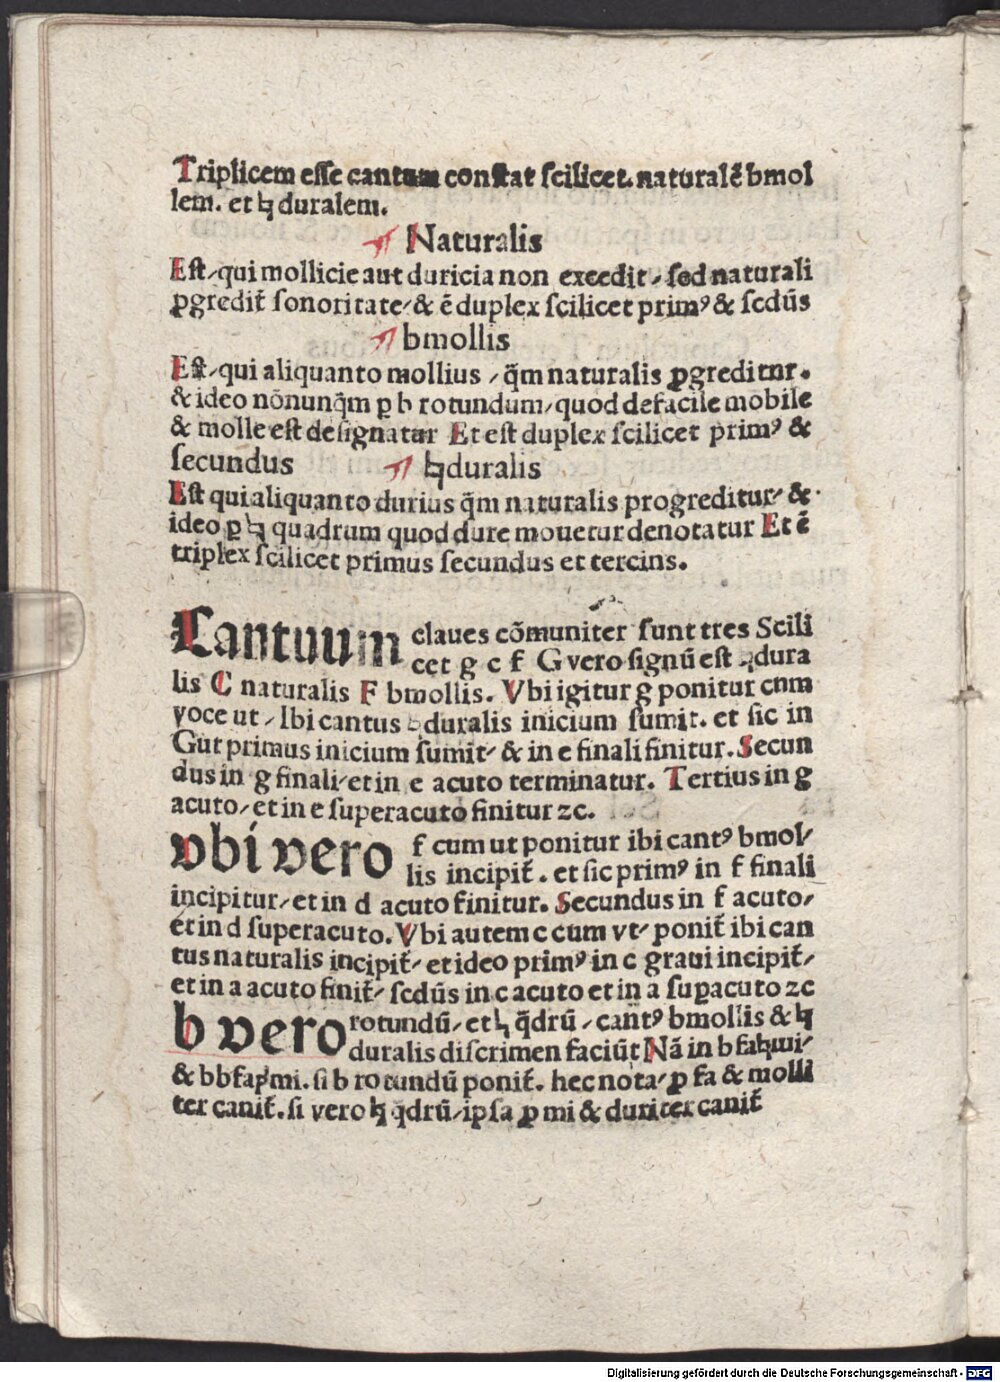 Triplicem esse cantum constat scilicet. naturalē bmol
lem. et ♮ duralem.
Naturalis
Est, qui mollicie aut duricia non excedit, sed naturali
ꝓgredit᷑ sonoritate, & ē duplex scilicet primꝰ & scdūs
bmollis
Est, qui aliquanto mollius, q̄m naturalis ꝓgreditur.
& ideo nōnunq̄m ꝑ b rotundum, quod defacile mobile
& molle est designatur Et est duplex scilicet primꝰ &
secundus ♮duralis
Est qui aliquanto durius q̄m naturalis progreditur, &
ideo ꝑ ♮ quadrum quod dure mouetur denotatur Et ē
triplex scilicet primus secundus et tercius.
Cantuum claues cōmuniter sunt tres Scili
cet g c f G vero signū est ♮dura
lis C naturalis F bmollis. Vbi igitur g ponitur cum
voce ut, Ibi cantus ♮duralis inicium sumit. et sic in
Gut primus inicium sumit, & in e finali finitur. Secun
dus in g finali, et in e acuto terminatur. Tertius in g
acuto, et in e superacuto finitur ꝛc.
Vbi vero f cum ut ponitur ibi cantꝰ bmol,
lis incipit᷑. et sic primꝰ in f finali
incipitur, et in d acuto finitur. Secundus in f acuto,
et in d superacuto. Vbi autem c cum vt, ponit᷑ ibi can
tus naturalis incipit᷑, et ideo primꝰ in c graui incipit᷑,
et in a acuto finit᷑, scdūs in c acuto et in a suꝑacuto ꝛc
b vero rotundū, et ♮ q̄drū, cantꝰ bmollis & ♮
duralis discrimen faciūt Nā in b fa♮mi,
& bbfa♮mi. si b rotundū ponit᷑. hec nota, ꝑ fa & molli
ter canit᷑. si vero ♮ q̄drū, ipsa ꝑ mi & duriter canit᷑
Digitalisierung gefördert durch die Deutsche Forschungsgemeinschaft - DFG